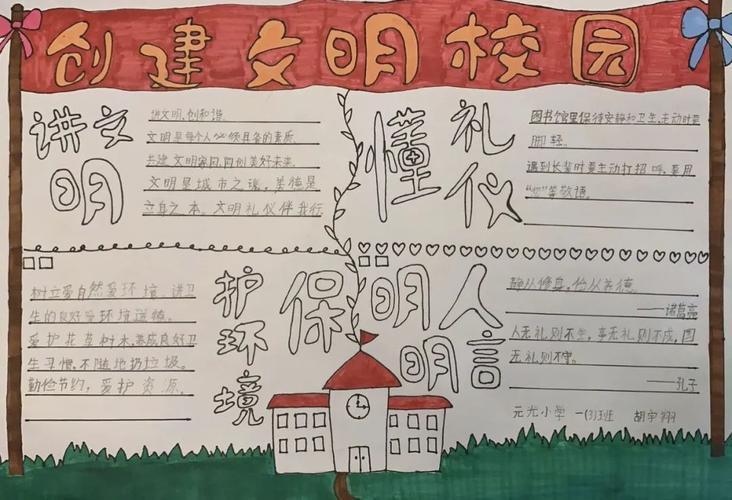 创建文明校园
讲文
明
讲文明,创和谐。
文明是每个人必须具备的素质。
共建文明家园,同创美好未来。
文明是城市之魂,美德是
立身之本。文明礼仪伴我行
懂礼
仪
图书馆里保持安静和卫生,走动时要
脚轻。
遇到长辈时要主动打招呼,要用
“您”等敬语。
树立爱自然爱环境、讲卫
生的良好爱环境道德。
爱护花草树木,养成良好卫
生习惯,不随地扔垃圾。
勤俭节约,爱护资源。
保护
环
境
明人
明言
静从修身,俭从养德。
——诸葛亮
人无礼则不生,事无礼则不成,国
无礼则不宁。
——孔子
元光小学 一(3)班 胡宇翔